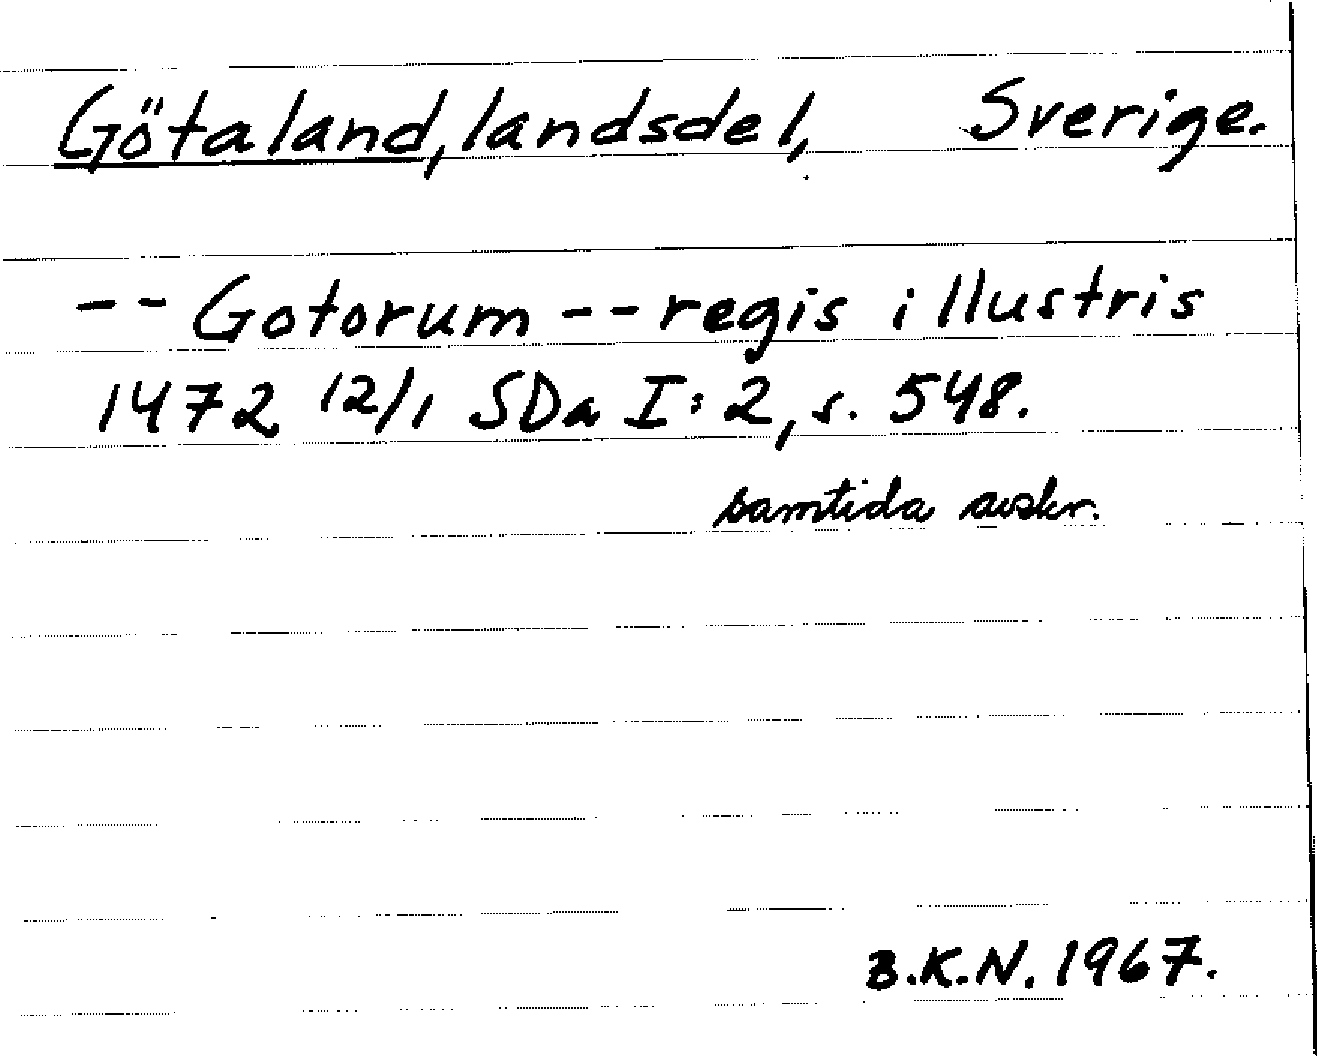 Götaland, landsdel, Sverige.
-- Gotorum -- regis illustris
1472 12/1 SDa I:2, s. 548.
samtida avskr.
B.K.N. 1967.